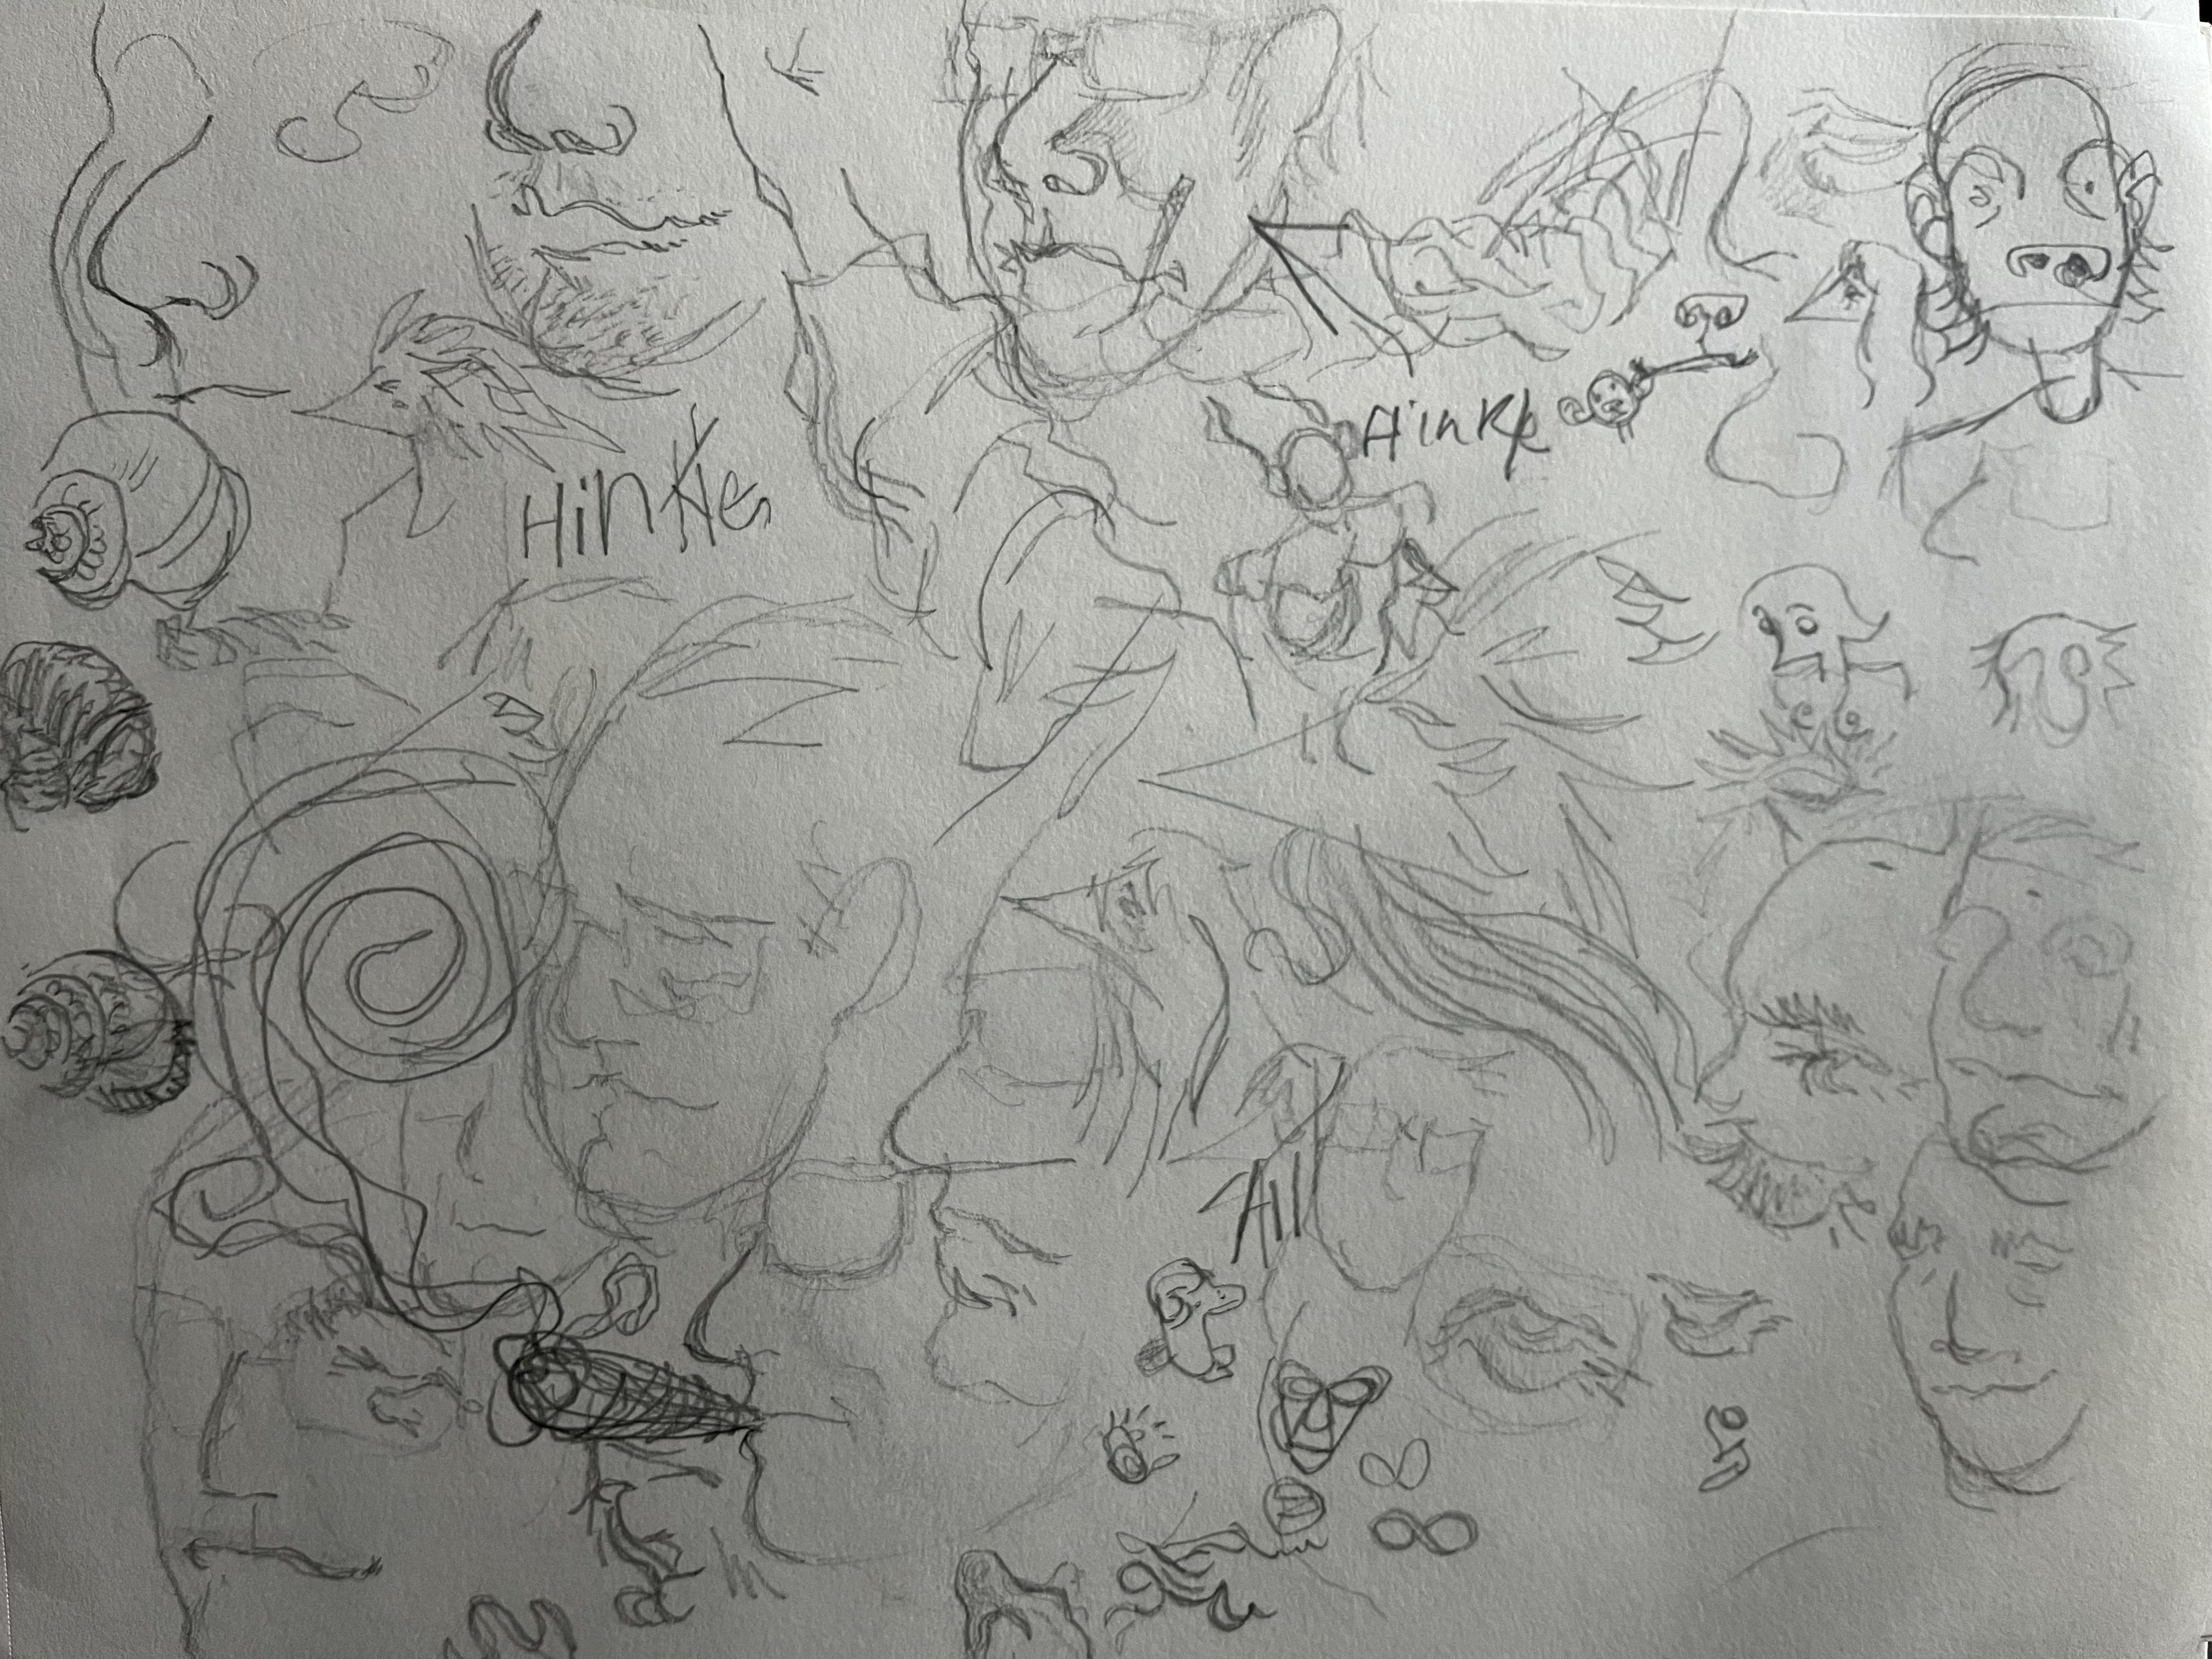 Hinkle
Hinkles
All